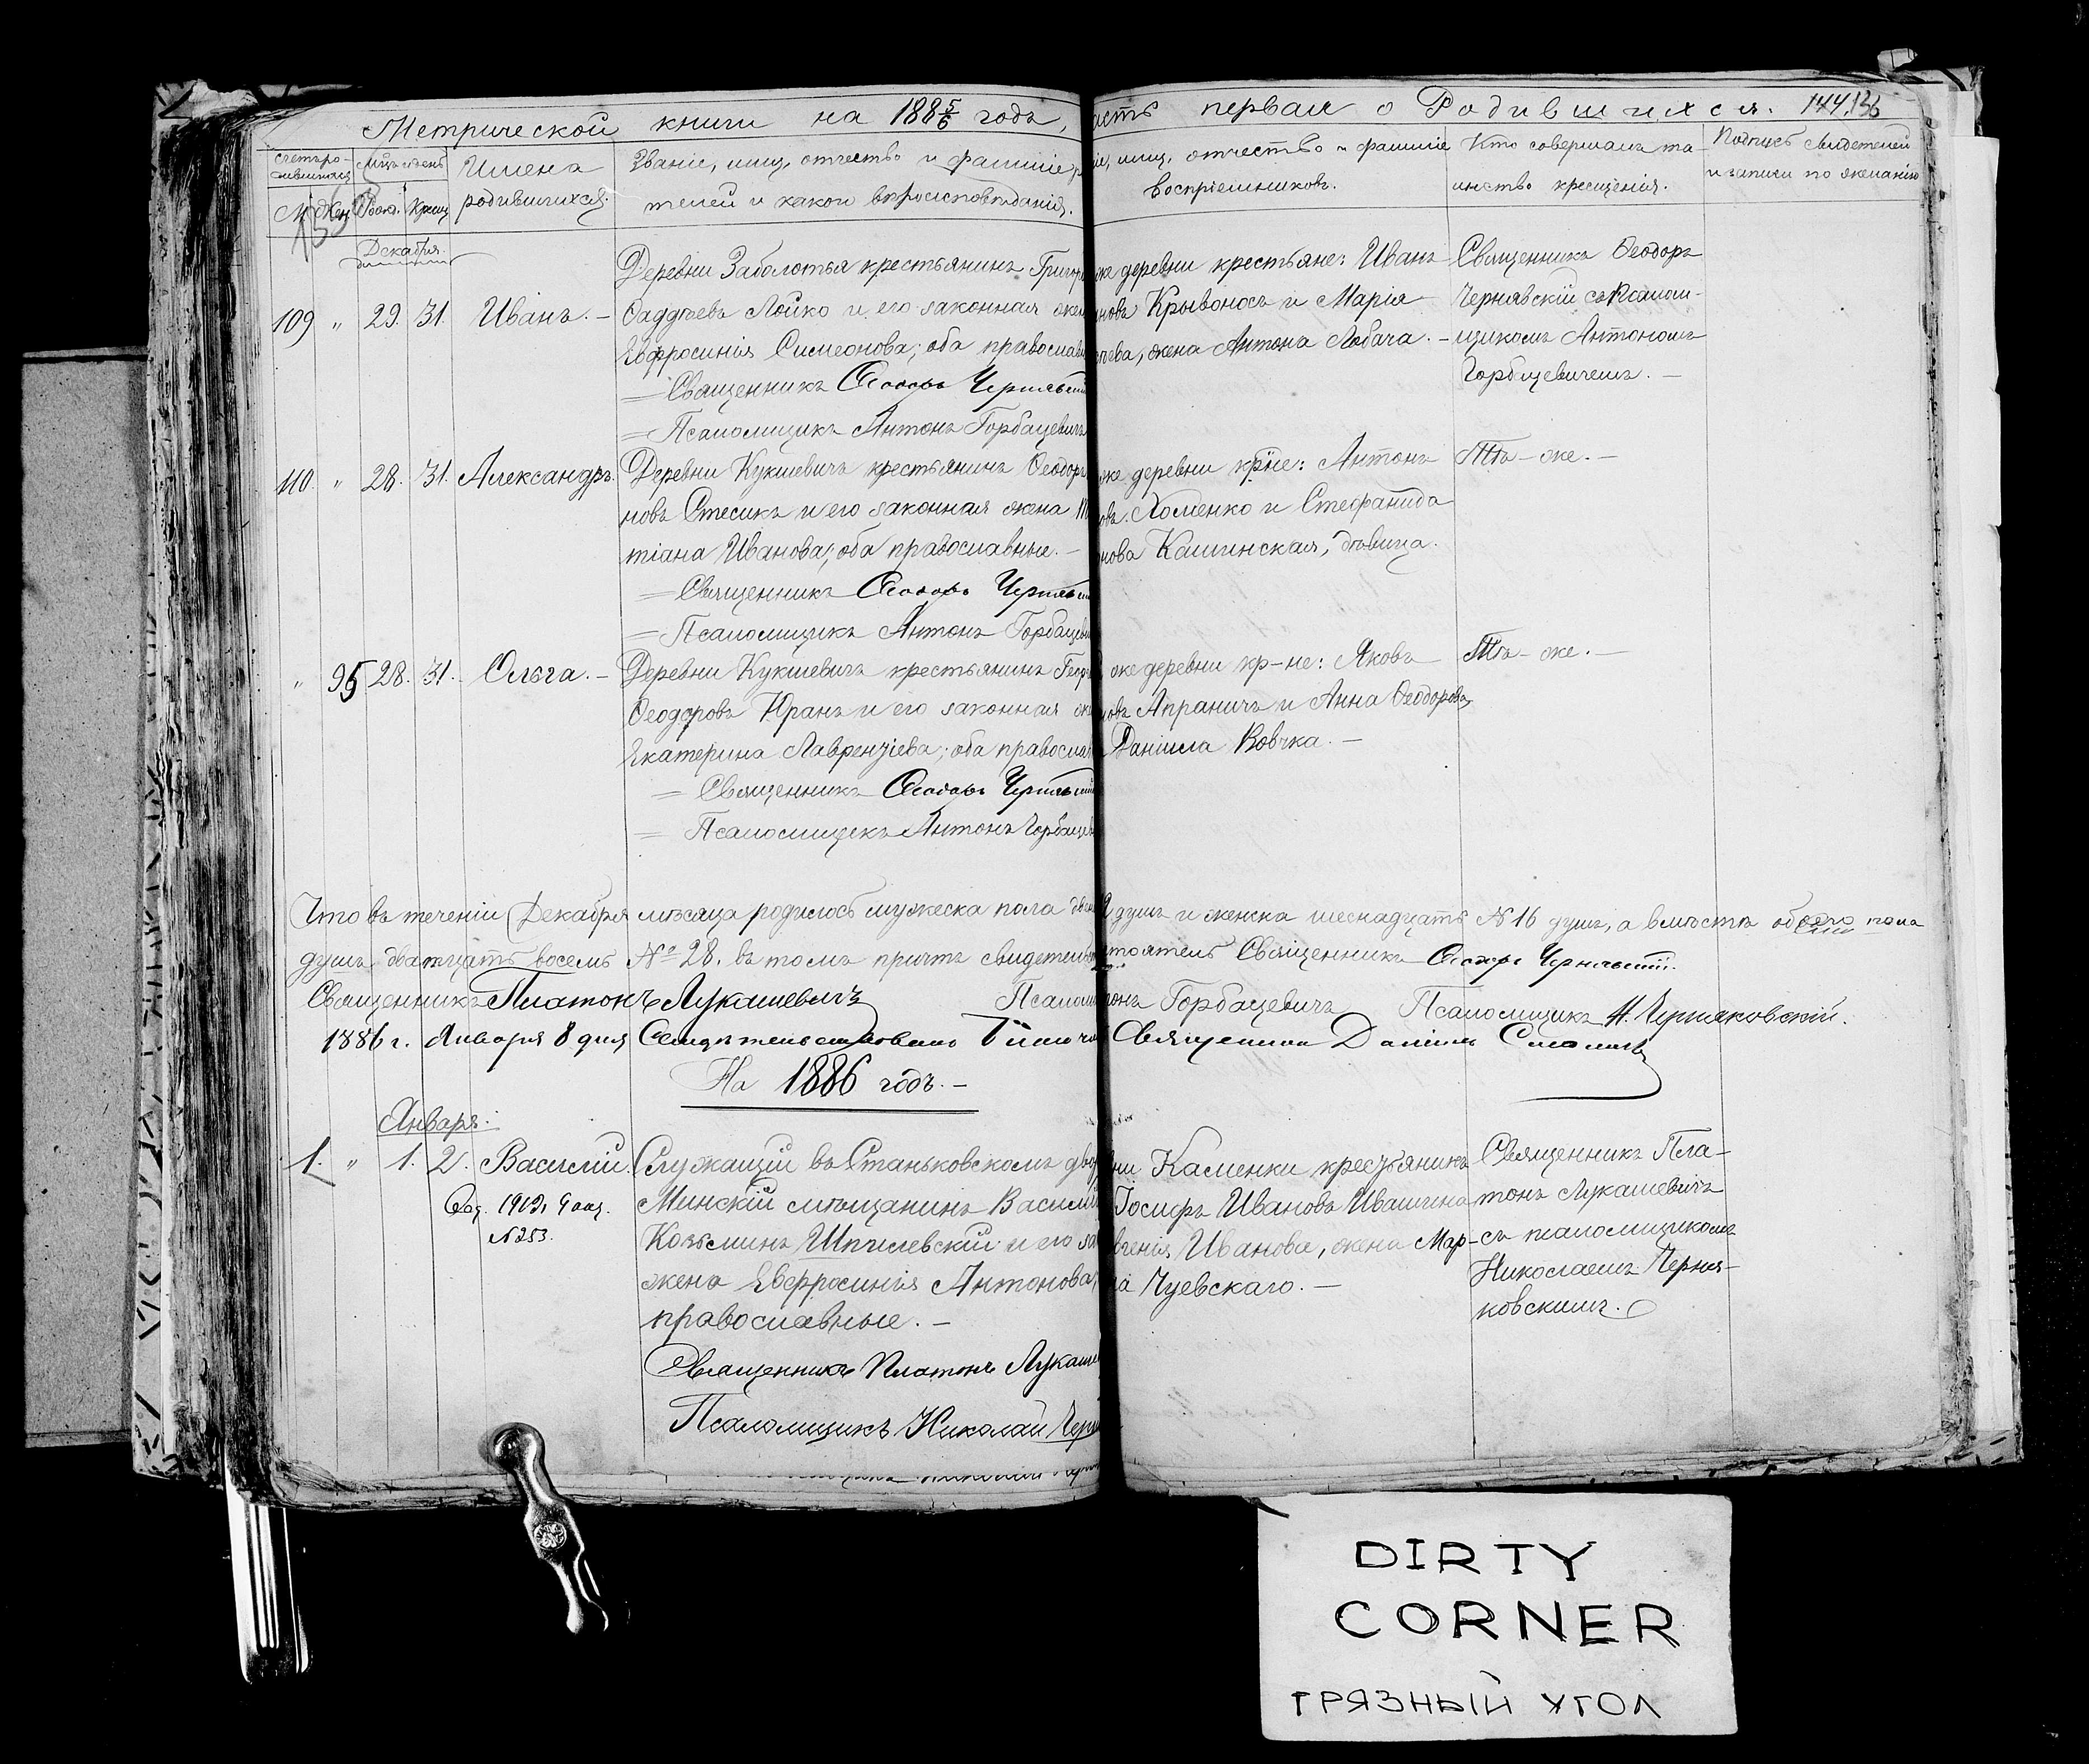 Метрической книги на 188 5/6 годъ, асть первая о Родившихся. 144. 136
Счетъ ро-
дившихся
Мцъ и день
Имена
родившихся.
Званіе, имя, отчество и фамилія р
телей и какого вѣроисповѣданія.
іе, имя, отчество и фамилія
воспріемниковъ.
Кто совершалъ та-
инство крещенія.
Подпись свидетелей
и записи по желанію
М. Жен. Рожд. Крещ.
Декабря.
109 " 29. 31. Иванъ. –
Деревни Заболотья крестьянинъ Григор
Фаддѣевъ Лойко и его законная жен
Евфросинія Симеонова; оба православн
= Священникъ Ѳеодоръ Чернявскій
= Псаломщикъ Антонъ Горбацевичъ
же деревни крестьяне: Иванъ
новъ Кривоносъ и Марія
ьева, жена Антона Лобача. –
Священникъ Ѳеодоръ
Чернявскій съ Псалом-
щикомъ Антономъ
Горбацевичемъ. –
110. " 28. 31. Александръ.
Деревни Кукшевичъ крестьянинъ Ѳеодоръ
новъ Стесикъ и его законная жена
тіана Иванова; оба православные. –
= Священникъ Ѳеодоръ Чернявскій
= Псаломщикъ Антонъ Горбацеви
же деревни кр-не: Антонъ
овъ Хоменко и Стефанида
нова Кашинская, дѣвица.
Тѣ-же. –
" 95 28. 31. Ольга. –
Деревни Кукшевичъ крестьянинъ Георг
Ѳеодоровъ Юранъ и его законная же
Екатерина Лаврентіева; оба православн
= Священникъ Ѳеодоръ Чернявскій
= Псаломщикъ Антонъ Горбацев
же деревни кр-не: Яковъ
новъ Апраничъ и Анна Ѳеодорова,
Даніила Вовчка. –
Тѣ-же. –
Что въ теченіи Декабря мѣсяца родилось мужеска пола две душъ и женска шеснадцать № 16 душъ, а вмѣстѣ обоего пола
душъ двадцать восемь № 28. въ томъ причтъ свидетель тоятель Священникъ Ѳеодоръ Чернявскій.
Священникъ Платонъ Лукашевичъ Псалом тонъ Горбацевичъ Псаломщикъ Н. Черняковскій.
1886 г. Января 8 дня Свидѣтельствовалъ Благочи Священникъ Даніилъ
На 1886 годъ. –
Января.
1. " 1. 2. Василій.
№ 253.
Служащій въ Станьковскомъ двор
Минскій мѣщанинъ Василій
Козьминъ Шпилевскій и его за
жена Евфросинія Антонова,
православные. –
Священникъ Платонъ Лукаше
Псаломщикъ Николай Черн
ни Каменки крестьянинъ
Іосифъ Ивановъ Ивашина
вгенія Иванова, жена Мар-
на Чуевскаго. –
Священникъ Пла-
тонъ Лукашевичъ
съ псаломщикомъ
Николаемъ Черня-
ковскимъ.
DIRTY
CORNER
ГРЯЗНЫЙ УГОЛ